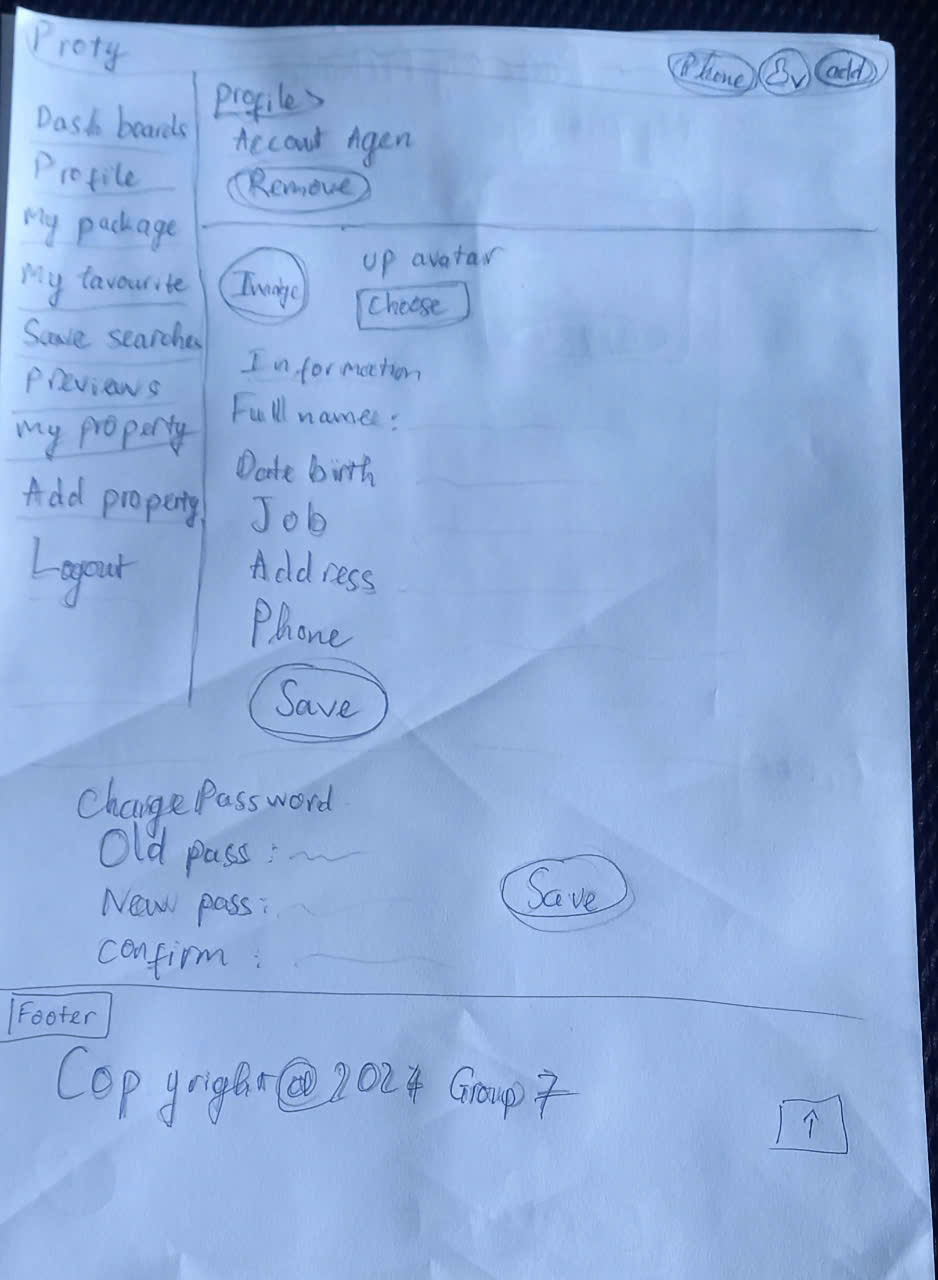 Proty
Phone
add
Dashboards
Profile
My package
My favourite
Save searches
Previews
My property
Add property
Logout
Profiles
Accout Agen
Remove
Image
up avatar
Choose
Information
Full name :
Date birth
Job
Address
Phone
Save
Change Password
Old pass :
New pass :
Confirm :
Save
Footer
Copyright @ 2024 Group 7
↑